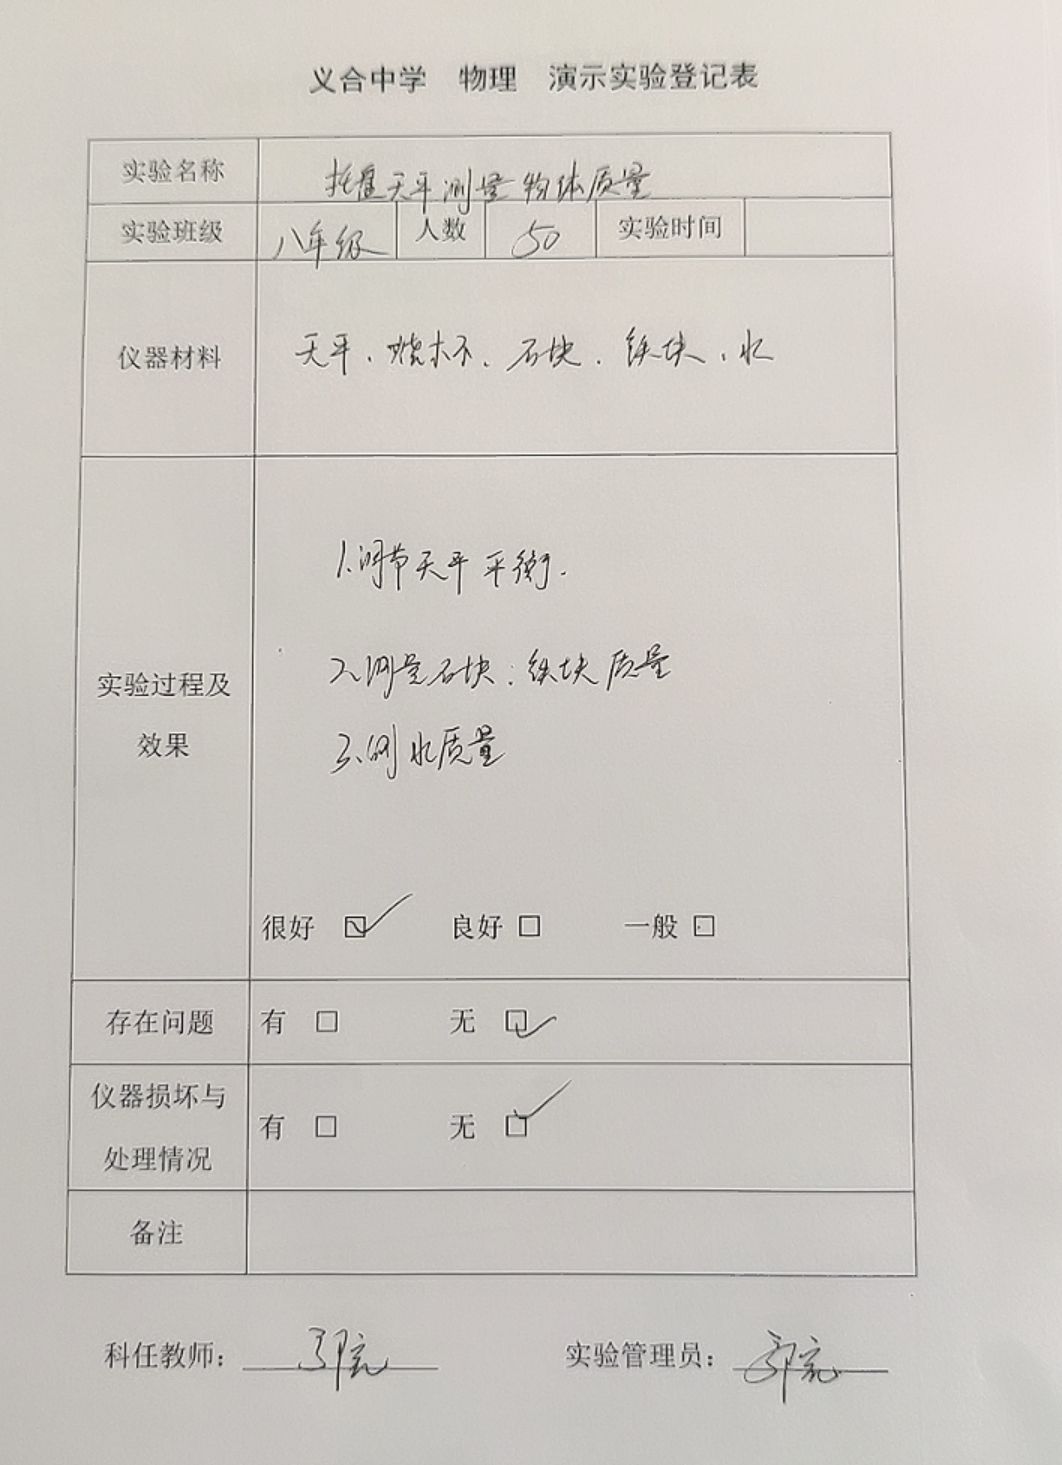 义合中学 物理 演示实验登记表
实验名称 托盘天平测量物体质量
实验班级 八年级 人数 50 实验时间
仪器材料 天平、烧杯、石块、铁块、水
1.调节天平平衡.
2.测量石块、铁块质量
实验过程及
效果
3.测水质量
很好 ☑ 良好 □ 一般 □
存在问题 有 □ 无 ☑
仪器损坏与
处理情况
有 □ 无 ☑
备注
科任教师： 实验管理员：